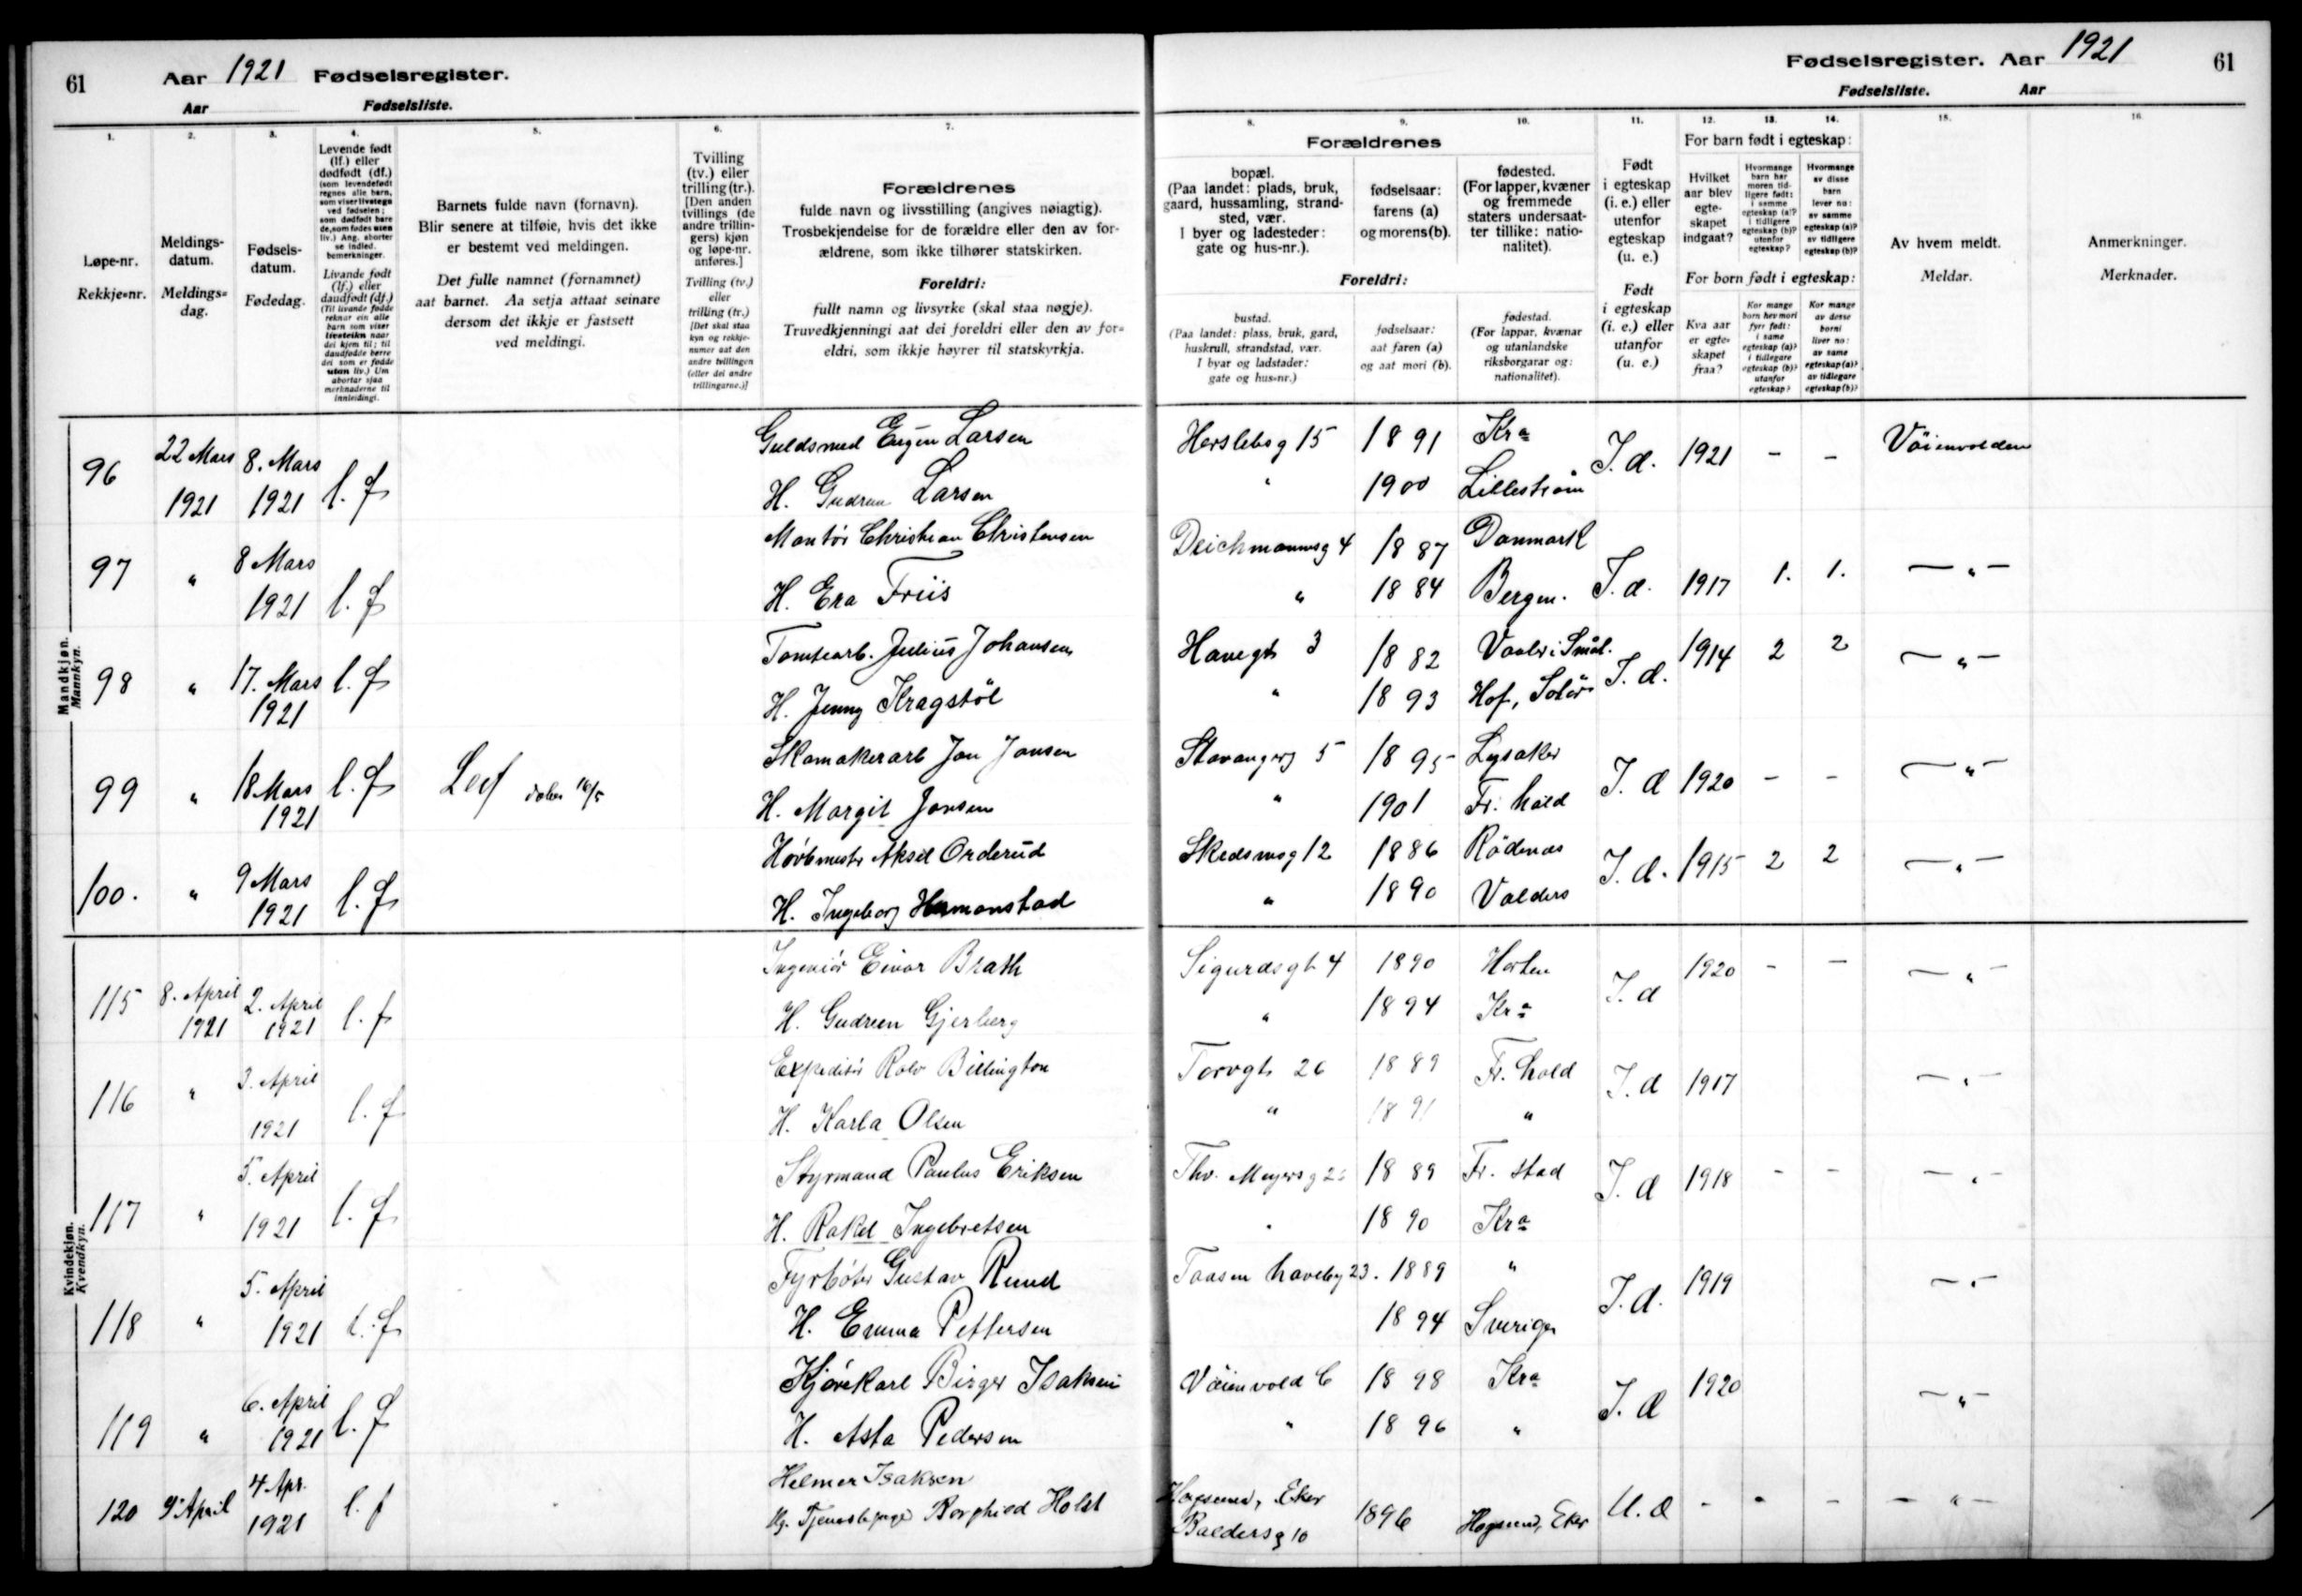 61 Aar 1921 Fødselsregister.
Aar Fødselsliste.
Fødselsregister. Aar 1921 61
Fødselsliste. Aar
1. 2. 3. 4. 5. 6. 7.
Løpe-nr.
Rekkje-nr.
Meldings-
datum.
Meldings-
dag.
Fødsels-
datum.
Fødedag.
Levende født
(lf.) eller
dødfødt (df.)
(som levendefødt
regnes alle barn,
som viser livstegn
ved fødselen;
som dødfødt bare
de, som fødes uten
liv.) Ang. aborter
se indled.
bemerkninger.
Livande født
(lf.) eller
daudfødt (df.)
(Til livande fødde
reknar ein alle
barn som viser
livsteikn naar
dei kjem til; til
daudfødde berre
dei som er fødde
utan liv.) Um
abortar sjaa
merknaderne til
innleidingi.
Barnets fulde navn (fornavn).
Blir senere at tilføie, hvis det ikke
er bestemt ved meldingen.
Det fulle namnet (fornamnet)
aat barnet. Aa setja attaat seinare
dersom det ikkje er fastsett
ved meldingi.
Tvilling
(tv.) eller
trilling (tr.).
[Den anden
tvillings (de
andre trillin-
gers) kjøn
og løpe-nr.
anføres.]
Tvilling (tv.)
eller
trilling (tr.)
[Det skal staa
kyn og rekkje-
numer aat den
andre tvillingen
(eller dei andre
trillingarne.)]
Forældrenes
fulde navn og livsstilling (angives nøiagtig).
Trosbekjendelse for de forældre eller den av for-
ældrene, som ikke tilhører statskirken.
Foreldri:
fullt namn og livsyrke (skal staa nøgje).
Truvedkjenningi aat dei foreldri eller den av for-
eldri, som ikkje høyrer til statskyrkja.
8. 9. 10. 11. 12. 13. 14. 15. 16.
Forældrenes
bopæl.
(Paa landet: plads, bruk,
gaard, hussamling, strand-
sted, vær.
I byer og ladesteder:
gate og hus-nr.).
fødselsaar:
farens (a)
og morens (b).
fødested.
(For lapper, kvæner
og fremmede
staters undersaat-
ter tillike: natio-
nalitet).
Foreldri:
bustad.
(Paa landet: plass, bruk, gard,
huskrull, strandstad, vær.
I byar og ladstader:
gate og hus-nr.)
fødselsaar:
aat faren (a)
og aat mori (b).
fødestad.
(For lappar, kvænar
og utanlandske
riksborgarar og:
nationalitet).
Født
i egteskap
(i. e.) eller
utenfor
egteskap
(u. e.)
Født
i egteskap
(i. e.) eller
utanfor
egteskap
(u. e.)
For barn født i egteskap:
Hvilket
aar blev
egte-
skapet
indgaat?
Hvormange
barn har
moren tid-
ligere født:
i samme
egteskap (a)?
i tidligere
egteskap (b)?
utenfor
egteskap?
Hvormange
av disse
barn
lever nu:
av samme
egteskap (a)?
av tidligere
egteskap (b)?
For born født i egteskap:
Kva aar
er egte-
skapet
fraa?
Kor mange
born hev mori
fyrr født:
i same
egteskap (a)?
i tidlegare
egteskap (b)?
utanfor
egteskap?
Kor mange
av desse
borni
liver no:
av same
egteskap (a)?
av tidlegare
egteskap (b)?
Av hvem meldt.
Meldar.
Anmerkninger.
Merknader.
Mandkjøn.
Mannkyn.
96 22 Mars 1921 8. Mars 1921 l. f Guldsmed Eugen Larsen Herslebsg 15 1891 Kra I. d. 1921 - - Vöienvolden
H. Gudrun Larsen " 1900 Lilleström
97 " 8 Mars 1921 l. f Montör Christian Christensen Deichmannsg 4 1887 Danmark I. d. 1917 1. 1. — " —
H. Era Friis " 1884 Bergen.
98 " 17. Mars 1921 l. f Tomtearb. Julius Johansen Havegt 3 1882 Vaaler i Smål. I. d. 1914 2 2 — " —
H. Jenny Kragstöl " 1893 Hof, Solör
99 " 18 Mars 1921 l. f Leif döbt 16/5 Skomakerarb Jon Jonsen Stavangerg 5 1895 Lysaker I. d 1920 - - — " —
H. Margit Jonsen " 1901 Fr. hald
100. " 9 Mars 1921 l. f Hövlmester Aksel Orderud Skedsmog 12 1886 Rödenes I. d. 1915 2 2 — " —
H. Ingeborg Hermanstad " 1890 Valders
Kvindekjøn.
Kvendkyn.
115 8. April 1921 2. April 1921 l. f Ingeniör Einar Brath Sigurdsgt 4 1890 Horten I. d 1920 - - — " —
H. Gudrun Gjerberg " 1894 Kra
116 " 3. April 1921 l. f Expeditör Rolv Billington Torvgt 26 1889 Fr. hald I. d 1917 — " —
H. Karla Olsen " 1891 "
117 " 5. April 1921 l. f Styrmand Paulus Eriksen Thv. Meyersg 1889 Fr. stad I. d 1918 - - — " —
H. Rakel Ingebretsen " 1890 Kra
118 " 5. April 1921 l. f Fyrböter Gustav Ruud Taasen haveby 23. 1889 " I. d. 1919 — " —
H. Emma Pettersen 1894 Sverige
119 " 6. April 1921 l. f Kjörekarl Birger Isaksen Vöienvold C 1898 Kra I. d 1920 — " —
H. Asta Pedersen " 1896 "
120 9 April 4 Apr. 1921 l. f Helmer Isaksen Hogsund, Eker U. d - - - — " —
Ug. Tjenestepige Borghild Holst Baldersg 10 1896 Hogsund, Eker